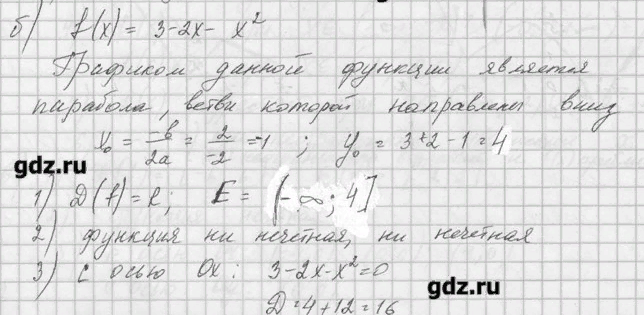 б) f(x) = 3-2x- x²
Графиком данной функции является
парабола, ветви которой направлены вниз
x₀ = -b/2a = 2/-2 = -1 ; y₀ = 3+2-1=4
gdz.ru
1) D(f)=R; E = (-∞; 4]
2) функция ни нечетная, ни нечетная
3) с осью Ox: 3-2x-x²=0
gdz.ru
D=4+12=16